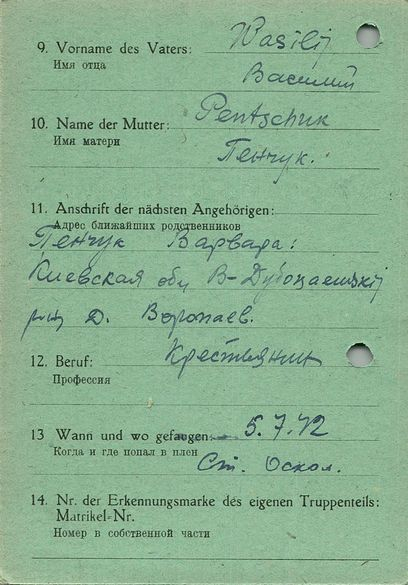 9. Vorname des Vaters: Wasilij
Имя отца Василий
10. Name der Mutter: Pentschuk
Имя матери Пенчук.
11. Anschrift der nächsten Angehörigen:
Адрес ближайших родственников
Пенчук Варвара:
Киевская обл В-
д. Воропаев.
12. Beruf: Крестьянин
Профессия
13 Wann und wo gefangen 5.7.42
Когда и где попал в плен
Ст. Оскол.
14. Nr. der Erkennungsmarke des eigenen Truppenteils:
Matrikel-Nr.
Номер в собственной части